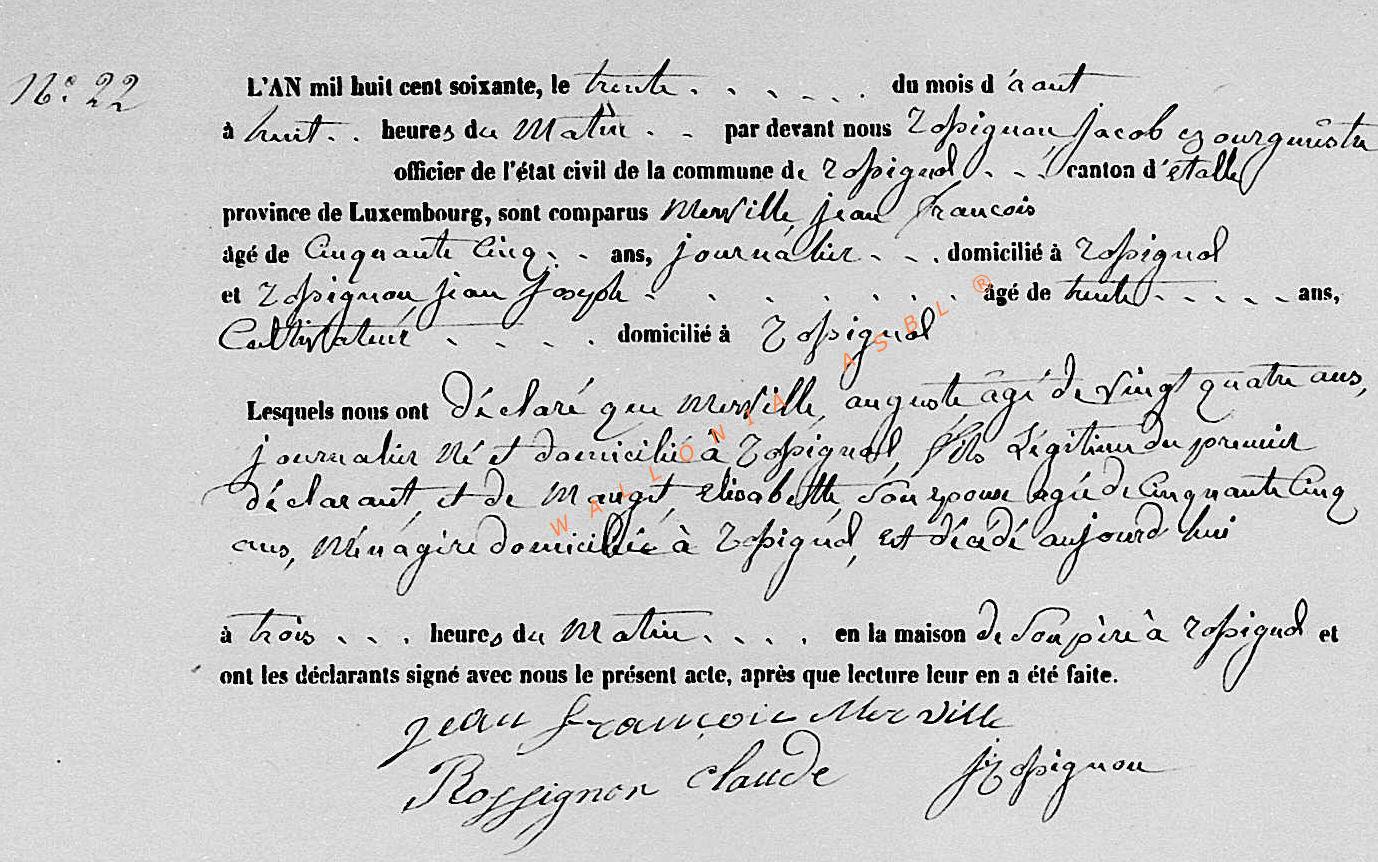 N.° 22
L'AN mil huit cent soixante, le trente . . . . . . du mois d'aout
à huit . . heures du Matin . . par devant nous Rossignon, Jacob Bourgmestre
officier de l'état civil de la commune de Rossignol . . . canton d'étalle
province de Luxembourg, sont comparus Merville, jean françois
âgé de Cinquante Cinq . . ans, journalier . . . domicilié à Rossignol
et Rossignon, jean joseph . . . . . . . . âgé de trente . . . . . ans,
Cultivateur . . . . . domicilié à Rossignol
Lesquels nous ont déclaré que Merville, auguste, âgé de vingt quatre ans,
journalier né et domicilié à Rossignol, fils Légitime du premier
déclarant, et de Mauget, Elisabeth, son epouse agée de Cinquante Cinq
ans, Ménagère domiciliée à Rossignol, est décédé aujourd'hui
à trois . . . heures du Matin . . . . en la maison de son père à Rossignol et
ont les déclarants signé avec nous le présent acte, après que lecture leur en a été faite.
jean françois Merville
Rossignon Claude JRossignon
WALLONIA ASBL ®